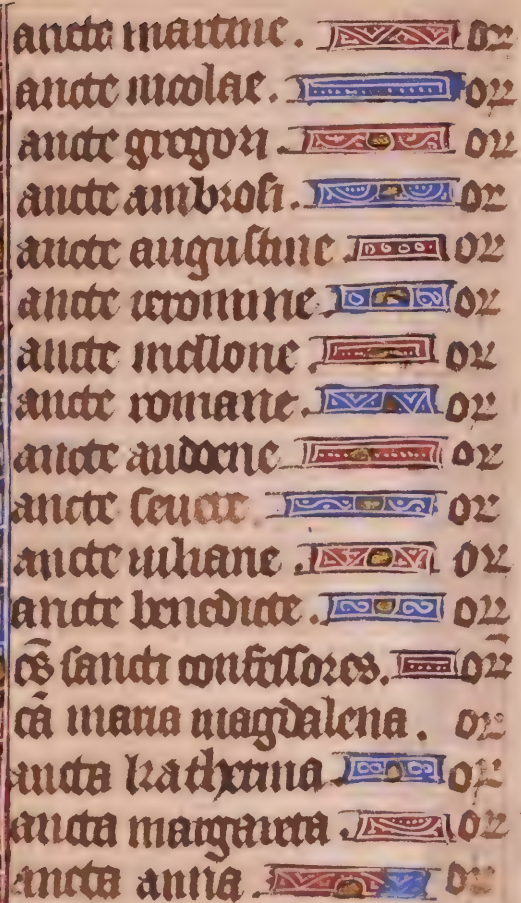 ancte martine. or
ancte nicolae. or
ancte gregori or
ancte ambrosi. or
ancte augustine or
ancte ieronime or
ancte mellone or
ancte romane. or
ancte audoene or
ancte seuere. or
ancte iuliane or
ancte benedicte. or
es sancti confessores. or
cā maria magdalena. or
ancta katherina or
ancta margareta or
ancta anna or